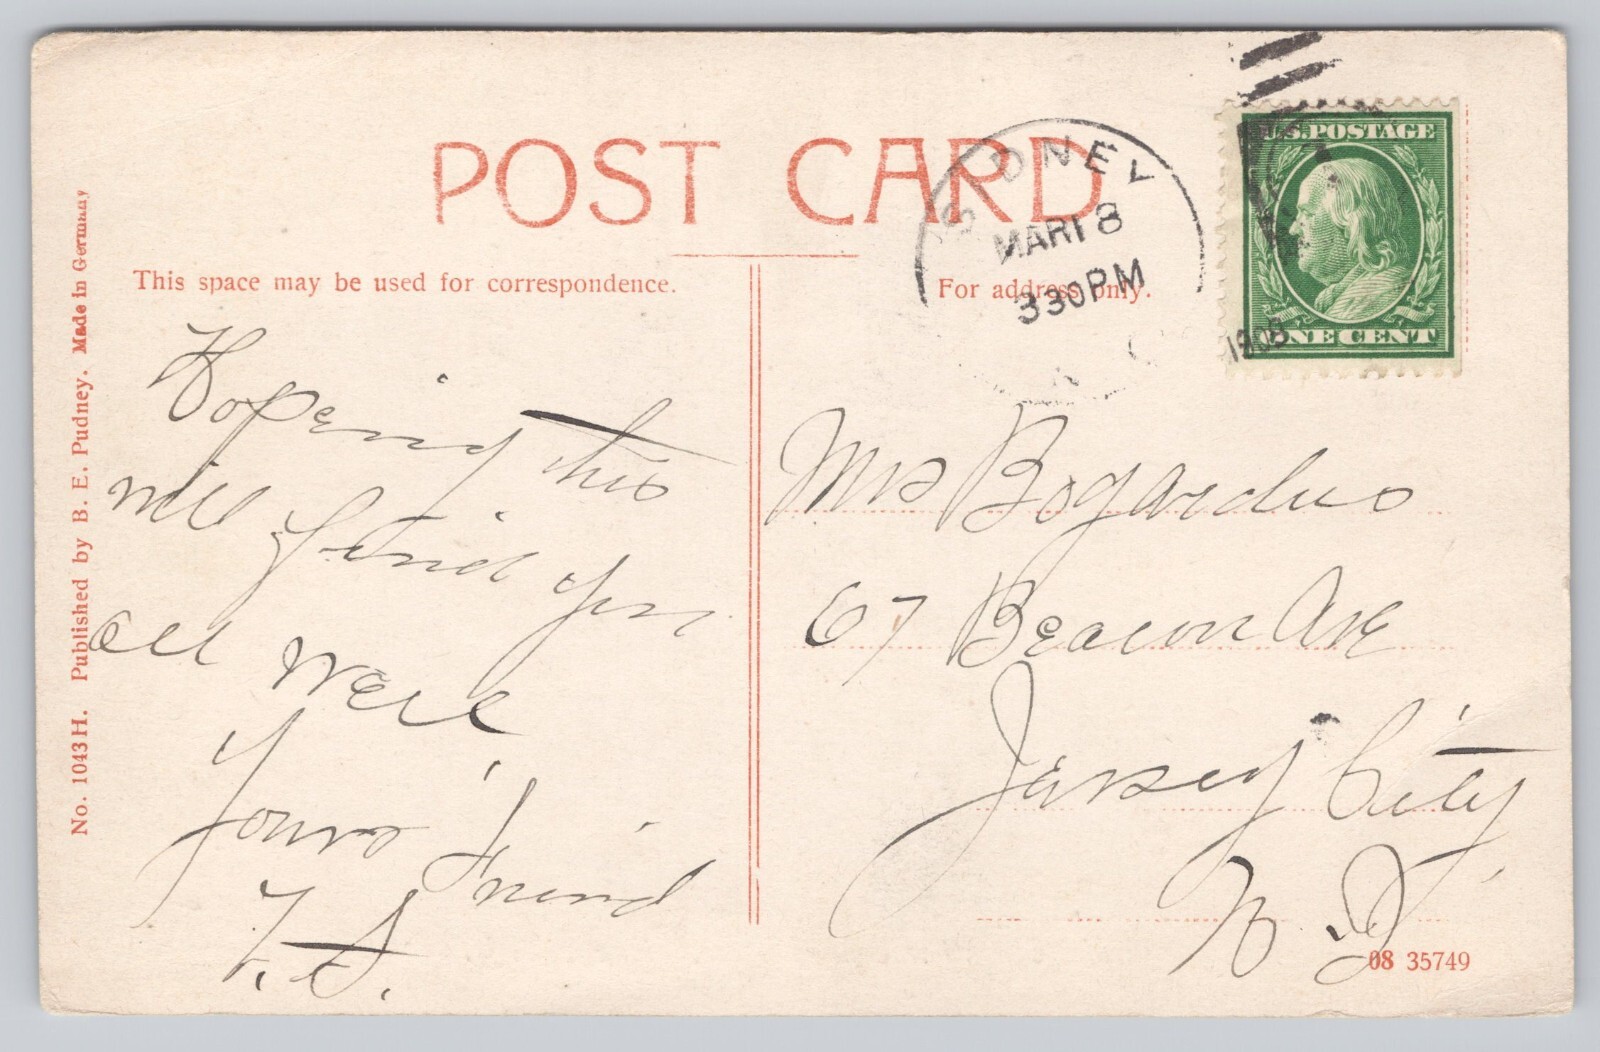 POST CARD
SIDNEY
MAR 18
330PM
1909
U.S. POSTAGE
ONE CENT
This space may be used for correspondence.
For address only.
No. 1043 H. Published by B. E. Pudney. Made in Germany
Hopeing this
will find you
all well
Yours Friend
F. S.
Mrs Bogardus
67 Beacon Ave
Jersey City
N. J.
08 35749